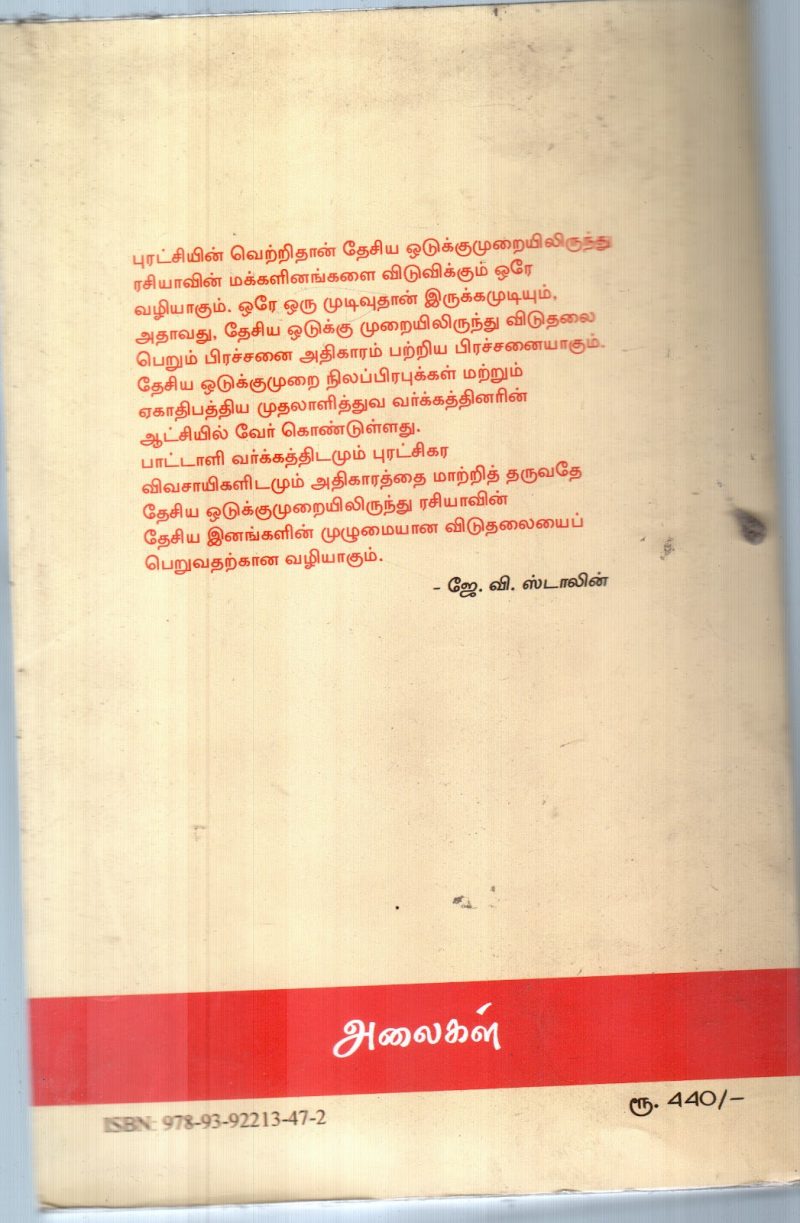 புரட்சியின் வெற்றிதான் தேசிய ஒடுக்குமுறையிலிருந்து
ரசியாவின் மக்களினங்களை விடுவிக்கும் ஒரே
வழியாகும். ஒரே ஒரு முடிவுதான் இருக்கமுடியும்,
அதாவது, தேசிய ஒடுக்கு முறையிலிருந்து விடுதலை
பெறும் பிரச்சனை அதிகாரம் பற்றிய பிரச்சனையாகும்.
தேசிய ஒடுக்குமுறை நிலப்பிரபுக்கள் மற்றும்
ஏகாதிபத்திய முதலாளித்துவ வர்க்கத்தினரின்
ஆட்சியில் வேர் கொண்டுள்ளது.
பாட்டாளி வர்க்கத்திடமும் புரட்சிகர
விவசாயிகளிடமும் அதிகாரத்தை மாற்றித் தருவதே
தேசிய ஒடுக்குமுறையிலிருந்து ரசியாவின்
தேசிய இனங்களின் முழுமையான விடுதலையைப்
பெறுவதற்கான வழியாகும்.
- ஜே. வி. ஸ்டாலின்
அலைகள்
ISBN: 978-93-92213-47-2
ரூ. 440/-